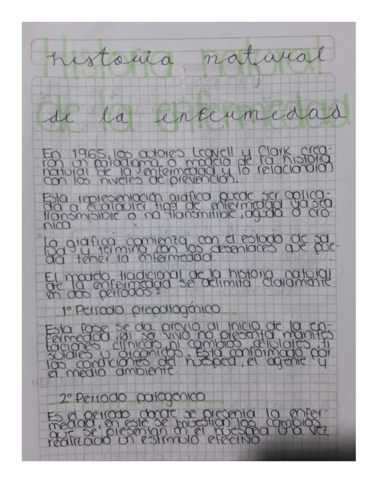 Historia natural
de la enfermedad
En 1965, los autores Leavell y Clark crea-
ron un paradigma o modelo de la historia
natural de la enfermedad y lo relacionaron
con los niveles de prevención.
Esta representación gráfica puede ser aplica-
da a cualquier tipo de enfermedad ya sea
transmisible o no transmisible, aguda o cró-
nica
La gráfica comienza con el estado de sa-
lud y termina con los desenlaces que pue-
da tener la enfermedad
El modelo tradicional de la historia natural
de la enfermedad se delimita claramente
en dos periodos:
1° Periodo prepatogénico
Esta fase se da previo al inicio de la en-
fermedad, el ser vivo no presenta manifes
taciones clínicas, ni cambios celulares, ti
sulares u orgánicos. Esta conformado por
las condiciones del huésped, el agente y
el medio ambiente.
2° Periodo patogénico
Es el periodo donde se presenta la enfer-
medad, en este se muestran los cambios
que se presentan en el huésped una vez
realizado un estímulo efectivo